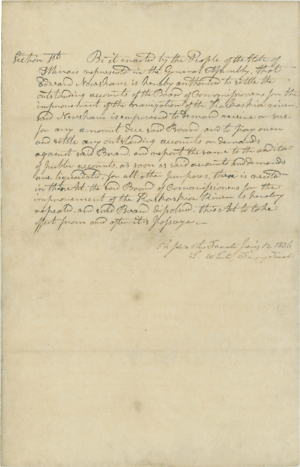 Section 1st Be it enacted by the People of the State of
Illinois represented in the General Assembly, that
Edward Newsham is hereby authorized to settle the
outstanding accounts of the Board of Commissioners for the
improvement of the navigation of the Kaskaskia river,
said Newsham is empowered to demand receive or sue
for any amount due said Board, and to pay over
and settle any outstanding accounts or demands
against said Board, and report the same to the auditor
of public accounts, as soon as said accounts and demands
are liquidated; for all other purposes, than is created
in this Act, the said Board of Commissioners for the
improvement of the Kaskaskia River is hereby
repealed, and said Board dissolved. this Act to take
effect from and after its passage.
Passed the Senate Jany 12, 1836